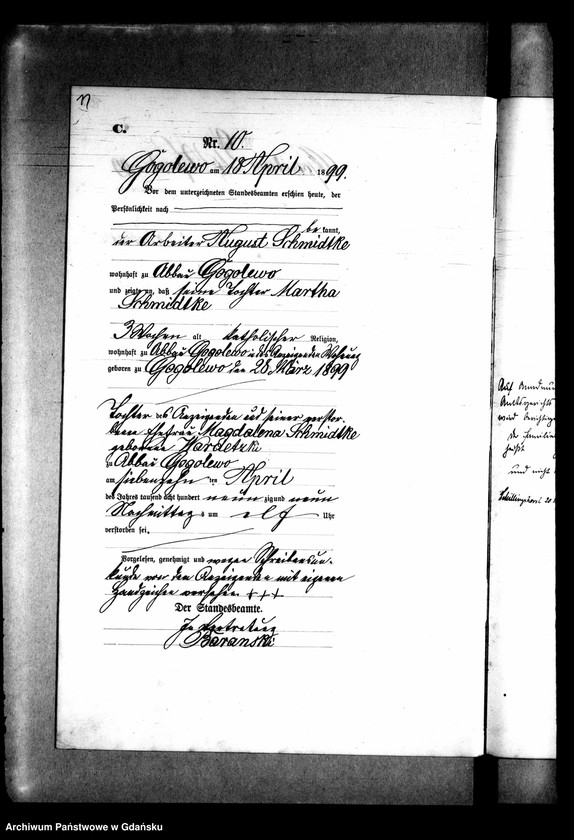 C.
Nr. 10.
Gogolewo am 18 April 1899.
Vor dem unterzeichneten Standesbeamten erschien heute, der
Persönlichkeit nach
be kannt,
der Arbeiter August Schmidtke
wohnhaft zu Abbau Gogolewo
und zeigte an, daß seine Tochter Martha
Schmidtke
3 Wochen alt katholischer Religion,
wohnhaft zu Abbau Gogolewo in des Anzeigenden Wohnung
geboren zu Gogolewo den 28 März 1899
Tochter des Anzeigenden und seiner verstor-
benen Ehefrau Magdalena Schmidtke
geborenen Wardetzki
zu Abbau Gogolewo
am siebenzehn ten April
des Jahres tausend acht hundert neun zig und neun
Nachmittag s um elf Uhr
verstorben sei.
Vorgelesen, genehmigt und wegen Schreibensun-
kunde von dem Anzeigenden mit eigenen
Handzeichen versehen + + +
Der Standesbeamte.
In Vertretung
Baranski
Auf
Amtsgerichts
wird berichtig
die Familien
heißt
und nicht
Archiwum Państwowe w Gdańsku